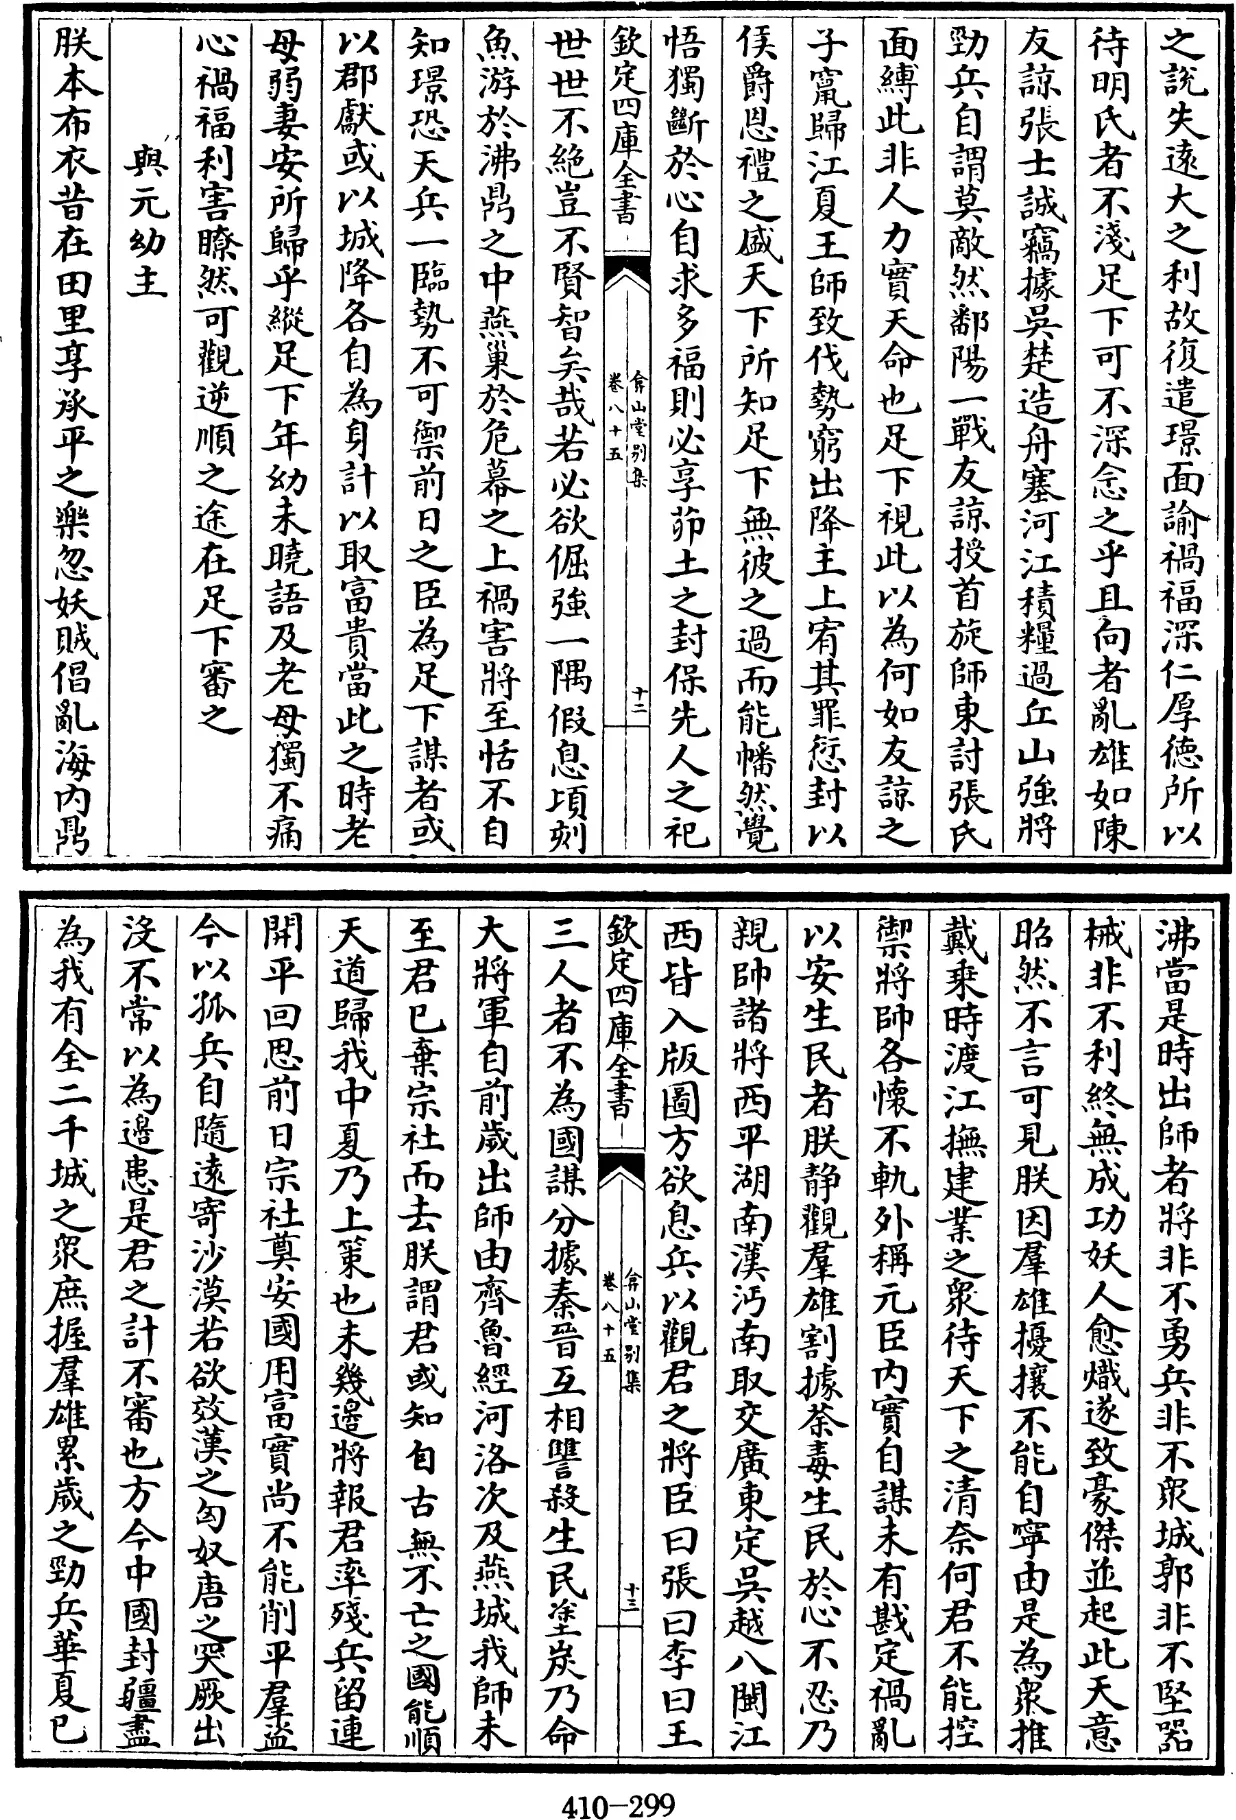 之說失遠大之利故復遣璟面諭禍福深仁厚德所以
待明氏者不淺足下可不深念之乎且向者亂雄如陳
友諒張士誠竊據吳楚造舟塞河江積糧過丘山強將
勁兵自謂莫敵然鄱陽一戰友諒授首旋師東討張氏
面縛此非人力實天命也足下視此以為何如友諒之
子竄歸江夏王師致伐勢窮出降主上宥其罪愆封以
侯爵恩禮之盛天下所知足下無彼之過而能幡然覺
悟獨斷於心自求多福則必享茆土之封保先人之祀
欽定四庫全書
弇山堂別集
卷八十五
十二
世世不絶豈不賢智矣哉若必欲倔強一隅假息頃刻
魚游於沸鼎之中燕巢於危幕之上禍害將至恬不自
知璟恐天兵一臨勢不可禦前日之臣為足下謀者或
以郡獻或以城降各自為身計以取富貴當此之時老
母弱妻安所歸乎縱足下年幼未曉語及老母獨不痛
心禍福利害瞭然可觀逆順之途在足下審之
與元幼主
朕本布衣昔在田里享承平之樂忽妖賊倡亂海内鼎
沸當是時出師者將非不勇兵非不衆城郭非不堅器
械非不利終無成功妖人愈熾遂致豪傑並起此天意
昭然不言可見朕因羣雄擾攘不能自寧由是為衆推
戴乗時渡江撫建業之衆待天下之清奈何君不能控
禦將帥各懷不軌外稱元臣内實自謀未有戡定禍亂
以安生民者朕静觀羣雄割據荼毒生民於心不忍乃
親帥諸將西平湖南漢沔南取交廣東定吳越八閩江
西皆入版圖方欲息兵以觀君之將臣曰張曰李曰王
欽定四庫全書
弇山堂別集
卷八十五
十三
三人者不為國謀分據秦晉互相讐殺生民塗炭乃命
大將軍自前歲出師由齊魯經河洛次及燕城我師未
至君已棄宗社而去朕謂君或知自古無不亡之國能順
天道歸我中夏乃上策也未幾邊將報君率殘兵留連
開平回思前日宗社奠安國用富實尚不能削平羣盜
今以孤兵自隨遠寄沙漠若欲效漢之匈奴唐之突厥出
没不常以為邊患是君之計不審也方今中國封疆盡
為我有全二千城之衆庶握羣雄累歲之勁兵華夏已
410-299